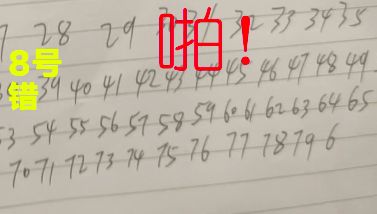 7 28 29 30 31 32 33 34 35
啪！
8号
错
39 40 41 42 43 44 45 46 47 48 49
53 54 55 56 57 58 59 60 61 62 63 64 65
70 71 72 73 74 75 76 77 78 79 6